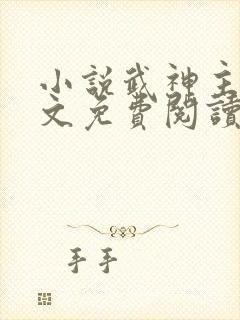 小說武神主
文免費閱讀
手手